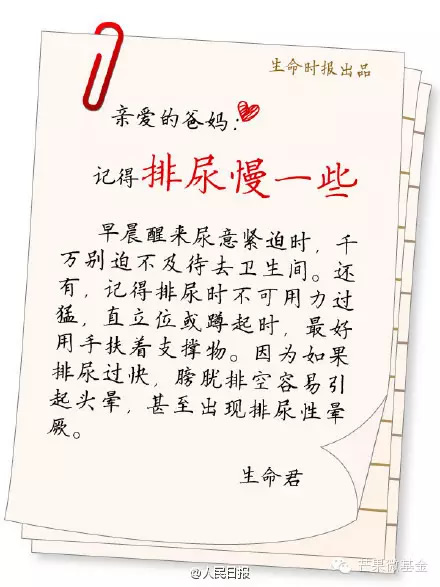 生命时报出品
亲爱的爸妈：
记得排尿慢一些
早晨醒来尿意紧迫时，千
万别迫不及待去卫生间。还
有，记得排尿时不可用力过
猛，直立位或蹲起时，最好
用手扶着支撑物。因为如果
排尿过快，膀胱排空容易引
起头晕，甚至出现排尿性晕
厥。
生命君
@人民日报
芒果微基金